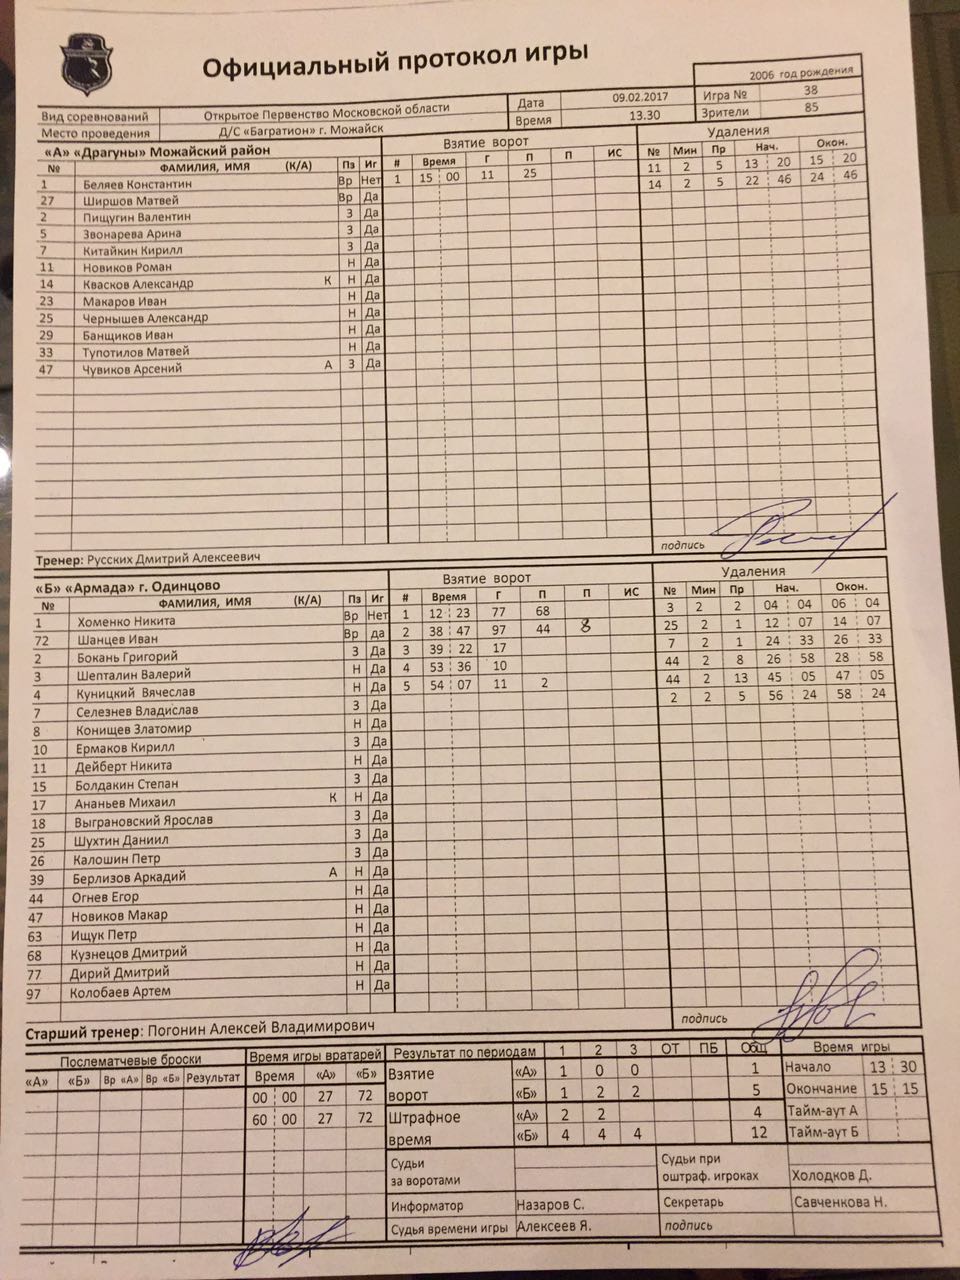 Официальный протокол игры
2006 год рождения
Вид соревнований Открытое Первенство Московской области Дата 09.02.2017 Игра № 38
Место проведения Д/С «Багратион» г. Можайск Время 13.30 Зрители 85
«А» «Драгуны» Можайский район Взятие ворот Удаления
№ ФАМИЛИЯ, ИМЯ (К/А) Пз Иг # Время Г П П ИС № Мин Пр Нач. Окон.
1 Беляев Константин Вр Нет 1 15 00 11 25 11 2 5 13 20 15 20
27 Ширшов Матвей Вр Да 14 2 5 22 46 24 46
2 Пищугин Валентин З Да
5 Звонарева Арина З Да
7 Китайкин Кирилл З Да
11 Новиков Роман Н Да
14 Квасков Александр К Н Да
23 Макаров Иван Н Да
25 Чернышев Александр Н Да
29 Банщиков Иван Н Да
33 Тупотилов Матвей Н Да
47 Чувиков Арсений А З Да
Тренер: Русских Дмитрий Алексеевич подпись
«Б» «Армада» г. Одинцово Взятие ворот Удаления
№ ФАМИЛИЯ, ИМЯ (К/А) Пз Иг # Время Г П П ИС № Мин Пр Нач. Окон.
1 Хоменко Никита Вр Нет 1 12 23 77 68 3 2 2 04 04 06 04
72 Шанцев Иван Вр да 2 38 47 97 44 8 25 2 1 12 07 14 07
2 Бокань Григорий З Да 3 39 22 17 7 2 1 24 33 26 33
3 Шепталин Валерий Н Да 4 53 36 10 44 2 8 26 58 28 58
4 Куницкий Вячеслав Н Да 5 54 07 11 2 44 2 13 45 05 47 05
7 Селезнев Владислав З Да 2 2 5 56 24 58 24
8 Конищев Златомир Н Да
10 Ермаков Кирилл З Да
11 Дейберт Никита Н Да
15 Болдакин Степан З Да
17 Ананьев Михаил К Н Да
18 Выграновский Ярослав З Да
25 Шухтин Даниил З Да
26 Калошин Петр З Да
39 Берлизов Аркадий А Н Да
44 Огнев Егор Н Да
47 Новиков Макар Н Да
63 Ищук Петр Н Да
68 Кузнецов Дмитрий Н Да
77 Дирий Дмитрий Н Да
97 Колобаев Артем Н Да
Старший тренер: Погонин Алексей Владимирович подпись
Послематчевые броски Время игры вратарей Результат по периодам 1 2 3 ОТ ПБ Общ Время игры
«А» «Б» Вр «А» Вр «Б» Результат Время «А» «Б» Взятие ворот «А» 1 0 0 1 Начало 13 30
00 00 27 72 «Б» 1 2 2 5 Окончание 15 15
60 00 27 72 Штрафное время «А» 2 2 4 Тайм-аут А
«Б» 4 4 4 12 Тайм-аут Б
Судьи за воротами Судьи при оштраф. игроках Холодков Д.
Информатор Назаров С. Секретарь Савченкова Н.
Судья времени игры Алексеев Я. подпись